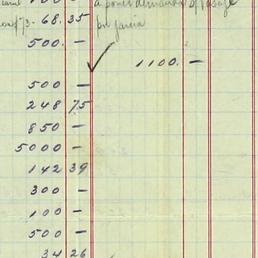 68.35 por garcia
500. —
1100. —
500 —
248 75
850 —
5000 —
142 39
300 —
100 —
500 —
34 26